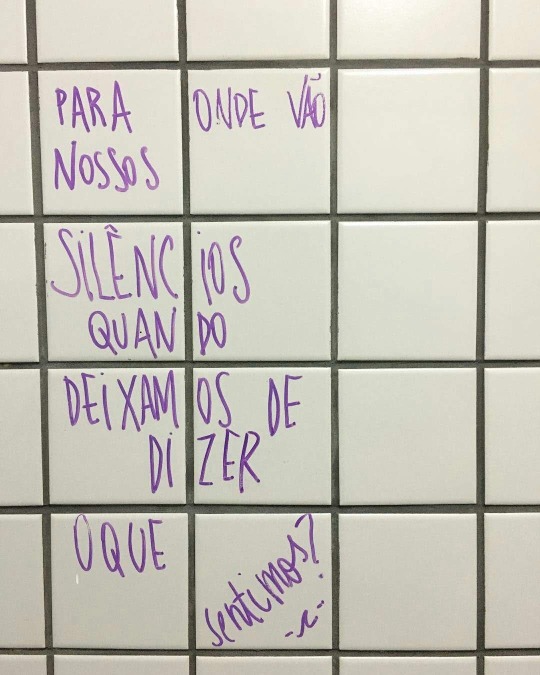 PARA ONDE VÃO
NOSSOS
SILÊNCIOS
QUANDO
DEIXAMOS DE
DIZER
O QUE
sentimos?